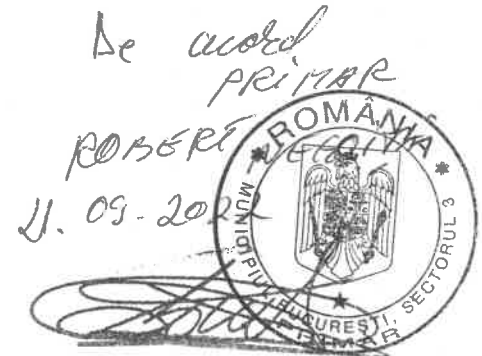 De acord
PRIMAR
ROBERT
09-2022
ROMÂNIA
MUNICIPIUL BUCUREȘTI, SECTORUL 3
PRIMAR